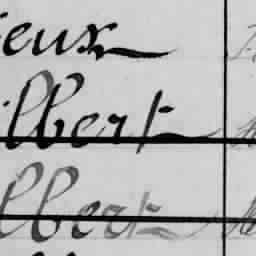 ieux
ilbert
lbert